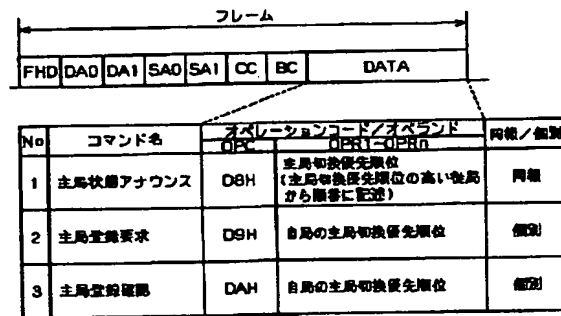 フレーム
FHD DA0 DA1 SA0 SA1 CC BC DATA
No コマンド名 オペレーションコード/オペランド 同報/個別
OPC OPR1~OPRn
1 主局状態アナウンス D8H 主局切換優先順位 同報
(主局切換優先順位の高い従局
から順番に記述)
2 主局登録要求 D9H 自局の主局切換優先順位 個別
3 主局登録確認 DAH 自局の主局切換優先順位 個別